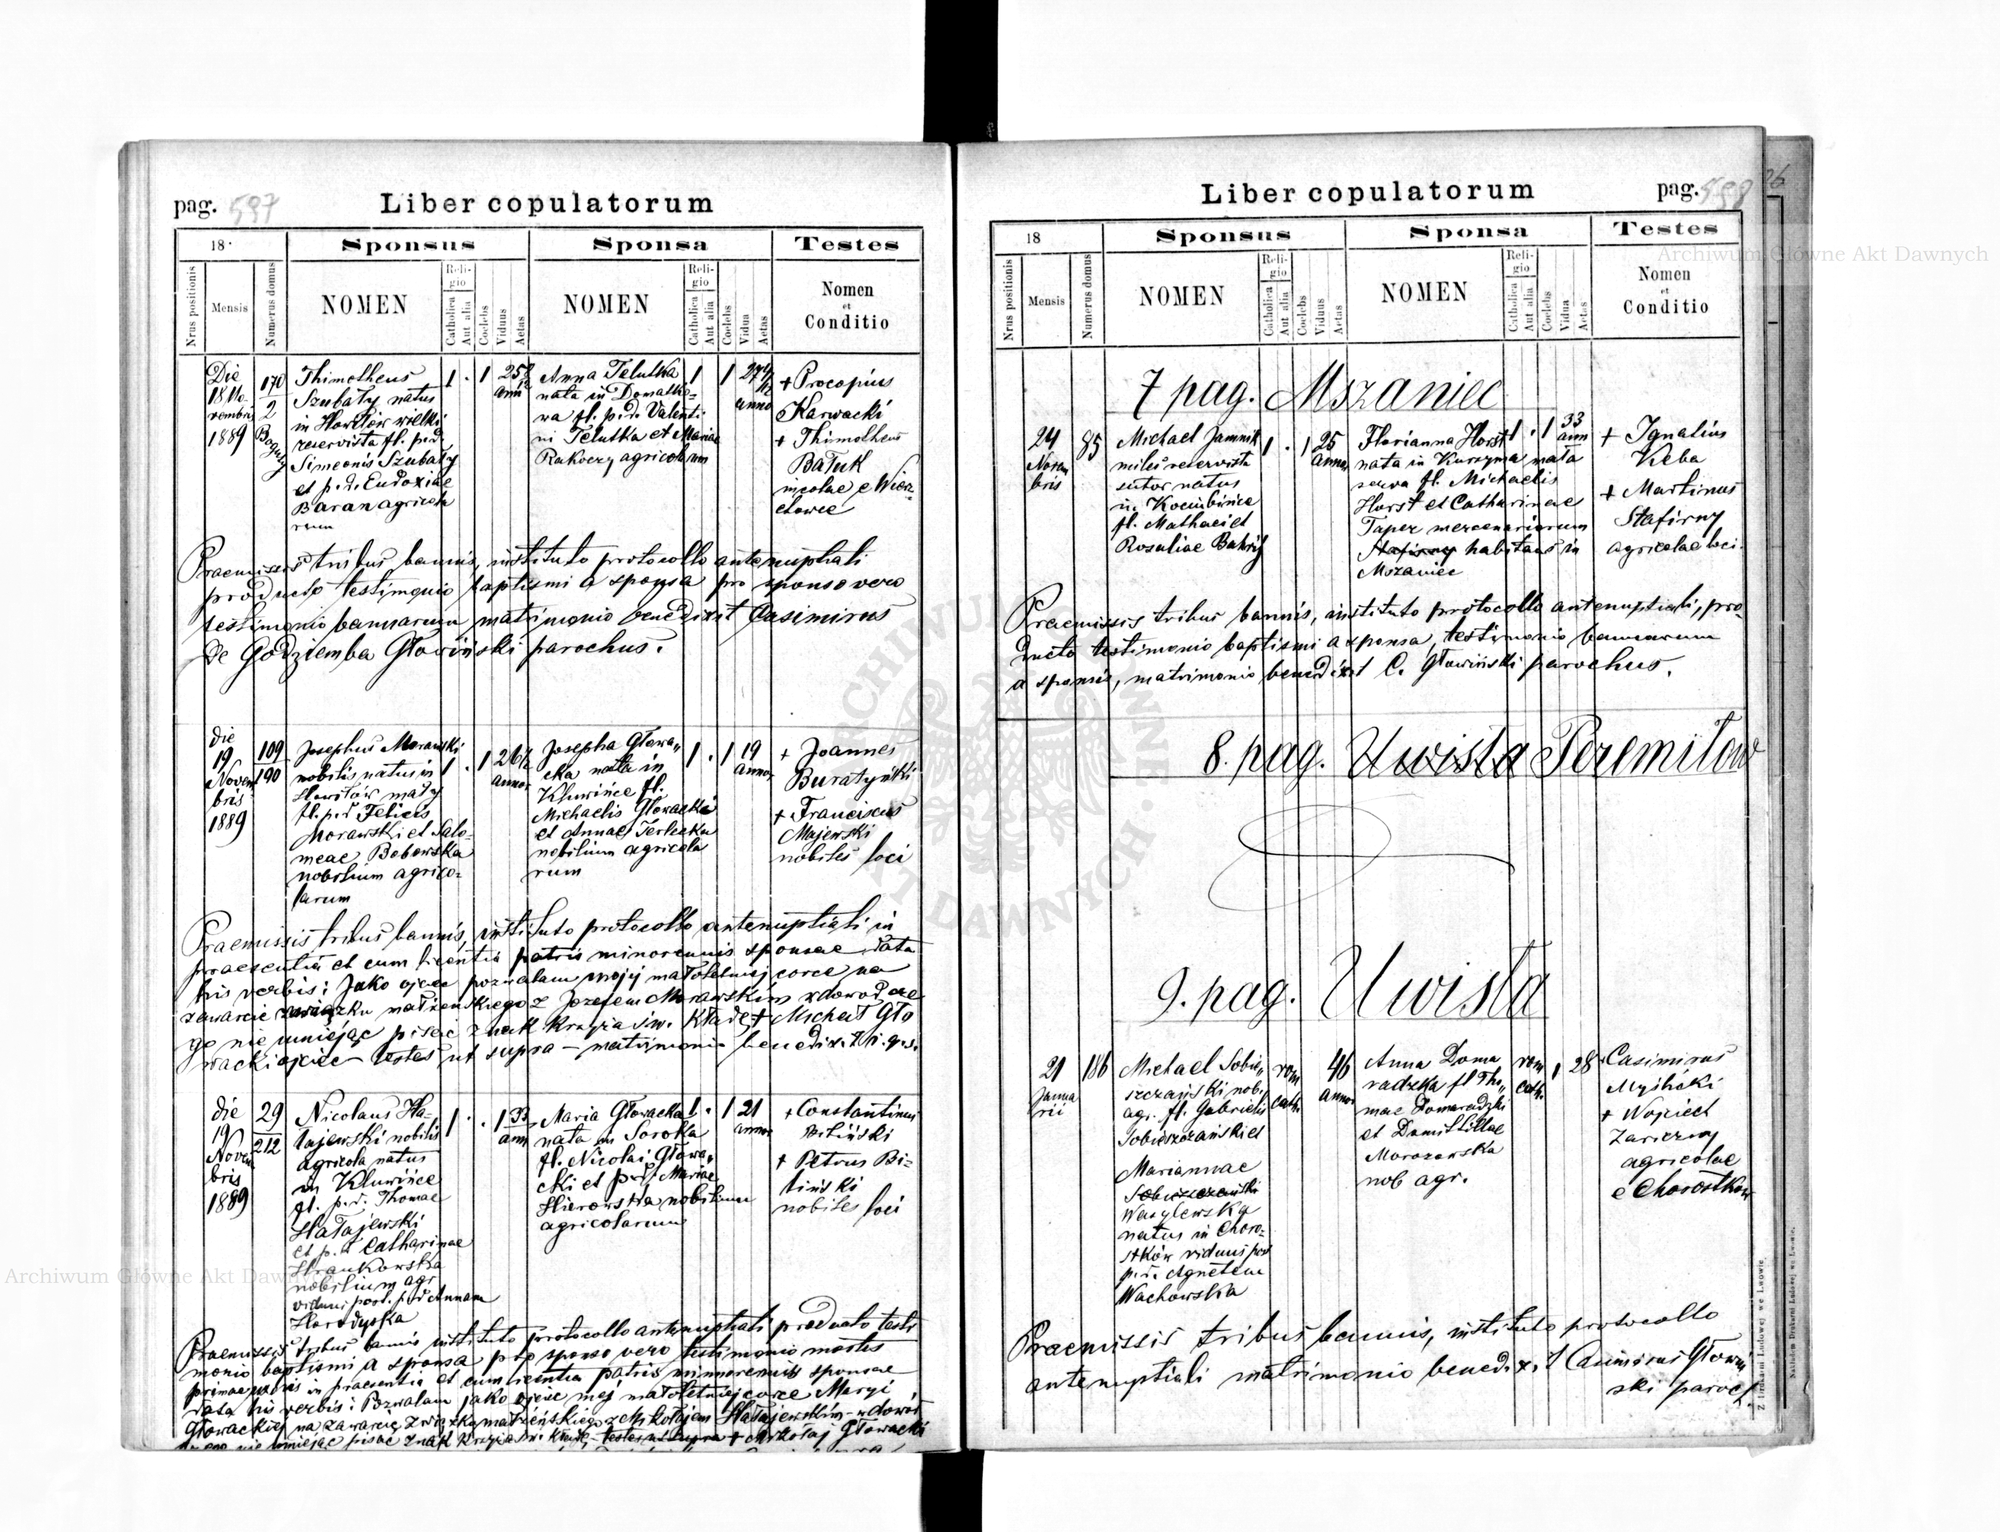 pag. 597
Liber copulatorum
18
Sponsus
Sponsa
Testes
Nrus positionis
Mensis
Numerus domus
NOMEN
Religio
Catholica
Aut alia
Coelebs
Viduus
Aetas
NOMEN
Religio
Catholica
Aut alia
Coelebs
Vidua
Aetas
Nomen
et
Conditio
Die
18 No-
vembris
1889
170
2
Thimotheus
Szubaty natus
in Howiłów wielki
reservista fl. p.d.
Simeonis Szubaty
et p.d. Eudoxiae
Baran agricola
rum
1 . 1 25
anni
Anna Telutka
nata in
wa fl. p.d. Valenti-
ni Telutka et Mariae
Rakoczy agricolarum
1 1 27
anno
+ Procopius
Karwacki
+ Thimotheus
Bałuk
incolae e Wierz-
chowce
Praemissis tribus bannis, instituto protocollo antenuptiali
producto testimonio baptismi a sponsa pro sponso vero
testimonio bannarum matrimonio benedixit Casimirus
de Godziemba Głowiński parochus.
die
19
Novem
bris
1889
109
190
Josephus Morawski
nobilis natus in
Howiłów mały
fl. p.d Felicis
Morawski et Salo-
meae Bobowska
nobilium agrico-
larum
1 . 1 26
annor
Josepha Głowa-
cka nata in
Kluwińce fl.
Michaelis Głowacki
et Annae Terlecka
nobilium agricola
rum
1 . 1 19
annor
+ Joannes
Buratyński
+ Franciscus
Majewski
nobiles loci
Praemissis tribus bannis, instituto protocollo antenuptiali in
praesentia et cum licentia patris minorennis sponsae data
his verbis: Jako ojciec pozwalam mojej małoletniej córce na
zawarcie związku małżeńskiego z Józefem Morawskim w dowód cze
go nie umiejąc pisać znak krzyża św. kładę + Michał Gło
wacki ojciec – testes ut supra – matrimonio benedix.
die
19
Novem
bris
1889
29
212
Nicolaus Ha-
łajewski nobilis
agricola natus
in Kluwińce
fl. p.d. Thomae
Hałajewski
et p.d Catharinae
Hrankowska
nobilium agr
viduus post. p.d Annam
Horodyska
1 . . 1 33
ann
Maria Głowacka
nata in Soroka
fl. Nicolai Głowa-
cki et p.d. Mariae
Hierowska nobilium
agricolarum
1 . 1 21
annor
+ Constantinus
Biliński
+ Petrus Bi-
liński
nobiles loci
Praemissis tribus bannis instituto protocollo antenuptiali producto testi
monio baptismi a sponsa pro sponso vero testimonio mortis
primae uxoris in praesentia et cum licentia patris minorennis sponsae
data his verbis: Pozwalam jako ojciec mej małoletniej córce Maryi
Głowackiej na zawarcie związku małżeńskiego z Mikołajem Hałajewskim w dowód
czego nie umiejąc pisać znak krzyża św. kładę, testes ut supra + Mikołaj Głowacki
Liber copulatorum
pag. 598
18
Sponsus
Sponsa
Testes
Nrus positionis
Mensis
Numerus domus
NOMEN
Religio
Catholica
Aut alia
Coelebs
Viduus
Aetas
NOMEN
Religio
Catholica
Aut alia
Coelebs
Vidua
Aetas
Nomen
et
Conditio
7 pag. Mszaniec
24
Novem
bris
85
Michael Jamnik
miles reservista
sutor natus
in Kociubińce
fl. Mathaei et
Rosaliae
1 . 1 25
annor
Florianna Horst
nata in
fl. Michaelis
Horst et Catharinae
Taper mercenariorum
Stafirny habitans in
Mszaniec
1 . 1 33
ann
+ Ignatius
Keba
+ Martinus
Stafirny
agricolae loci.
Praemissis tribus bannis, instituto protocollo antenuptiali, pro-
ducto testimonio baptismi a sponsa, testimonio bannarum
a sponsis, matrimonio benedixit C. Głowiński parochus.
8. pag. Uwisła Peremiłow
9. pag. Uwisła
21
Janua
rii
186
Michael Sobie-
szczański nob.
agr. fl. Gabrielis
Sobieszczański et
Mariannae
Sobieszczański
Wasylewska
natus in Choro-
stków viduus post
p.d. Agnetem
Wachowska
rom
cath.
46
annor
Anna Doma
radzka fl Tho-
mae Domaradzki
et Domicillae
Morozowska
nob agr.
rom
cath.
1 28
Casimirus
Myślicki
+ Wojciech
Zariczny
agricolae
e Chorostków
Praemissis tribus bannis, instituto protocollo
antenuptiali matrimonio benedixit Casimirus Głowiń
ski paroch.
Z Drukarni Ludowej we Lwowie.
Nakładem Drukarni Ludowej we Lwowie.
Archiwum Główne Akt Dawnych
Archiwum Główne Akt Dawnych
ARCHIWUM GŁÓWNE AKT DAWNYCH